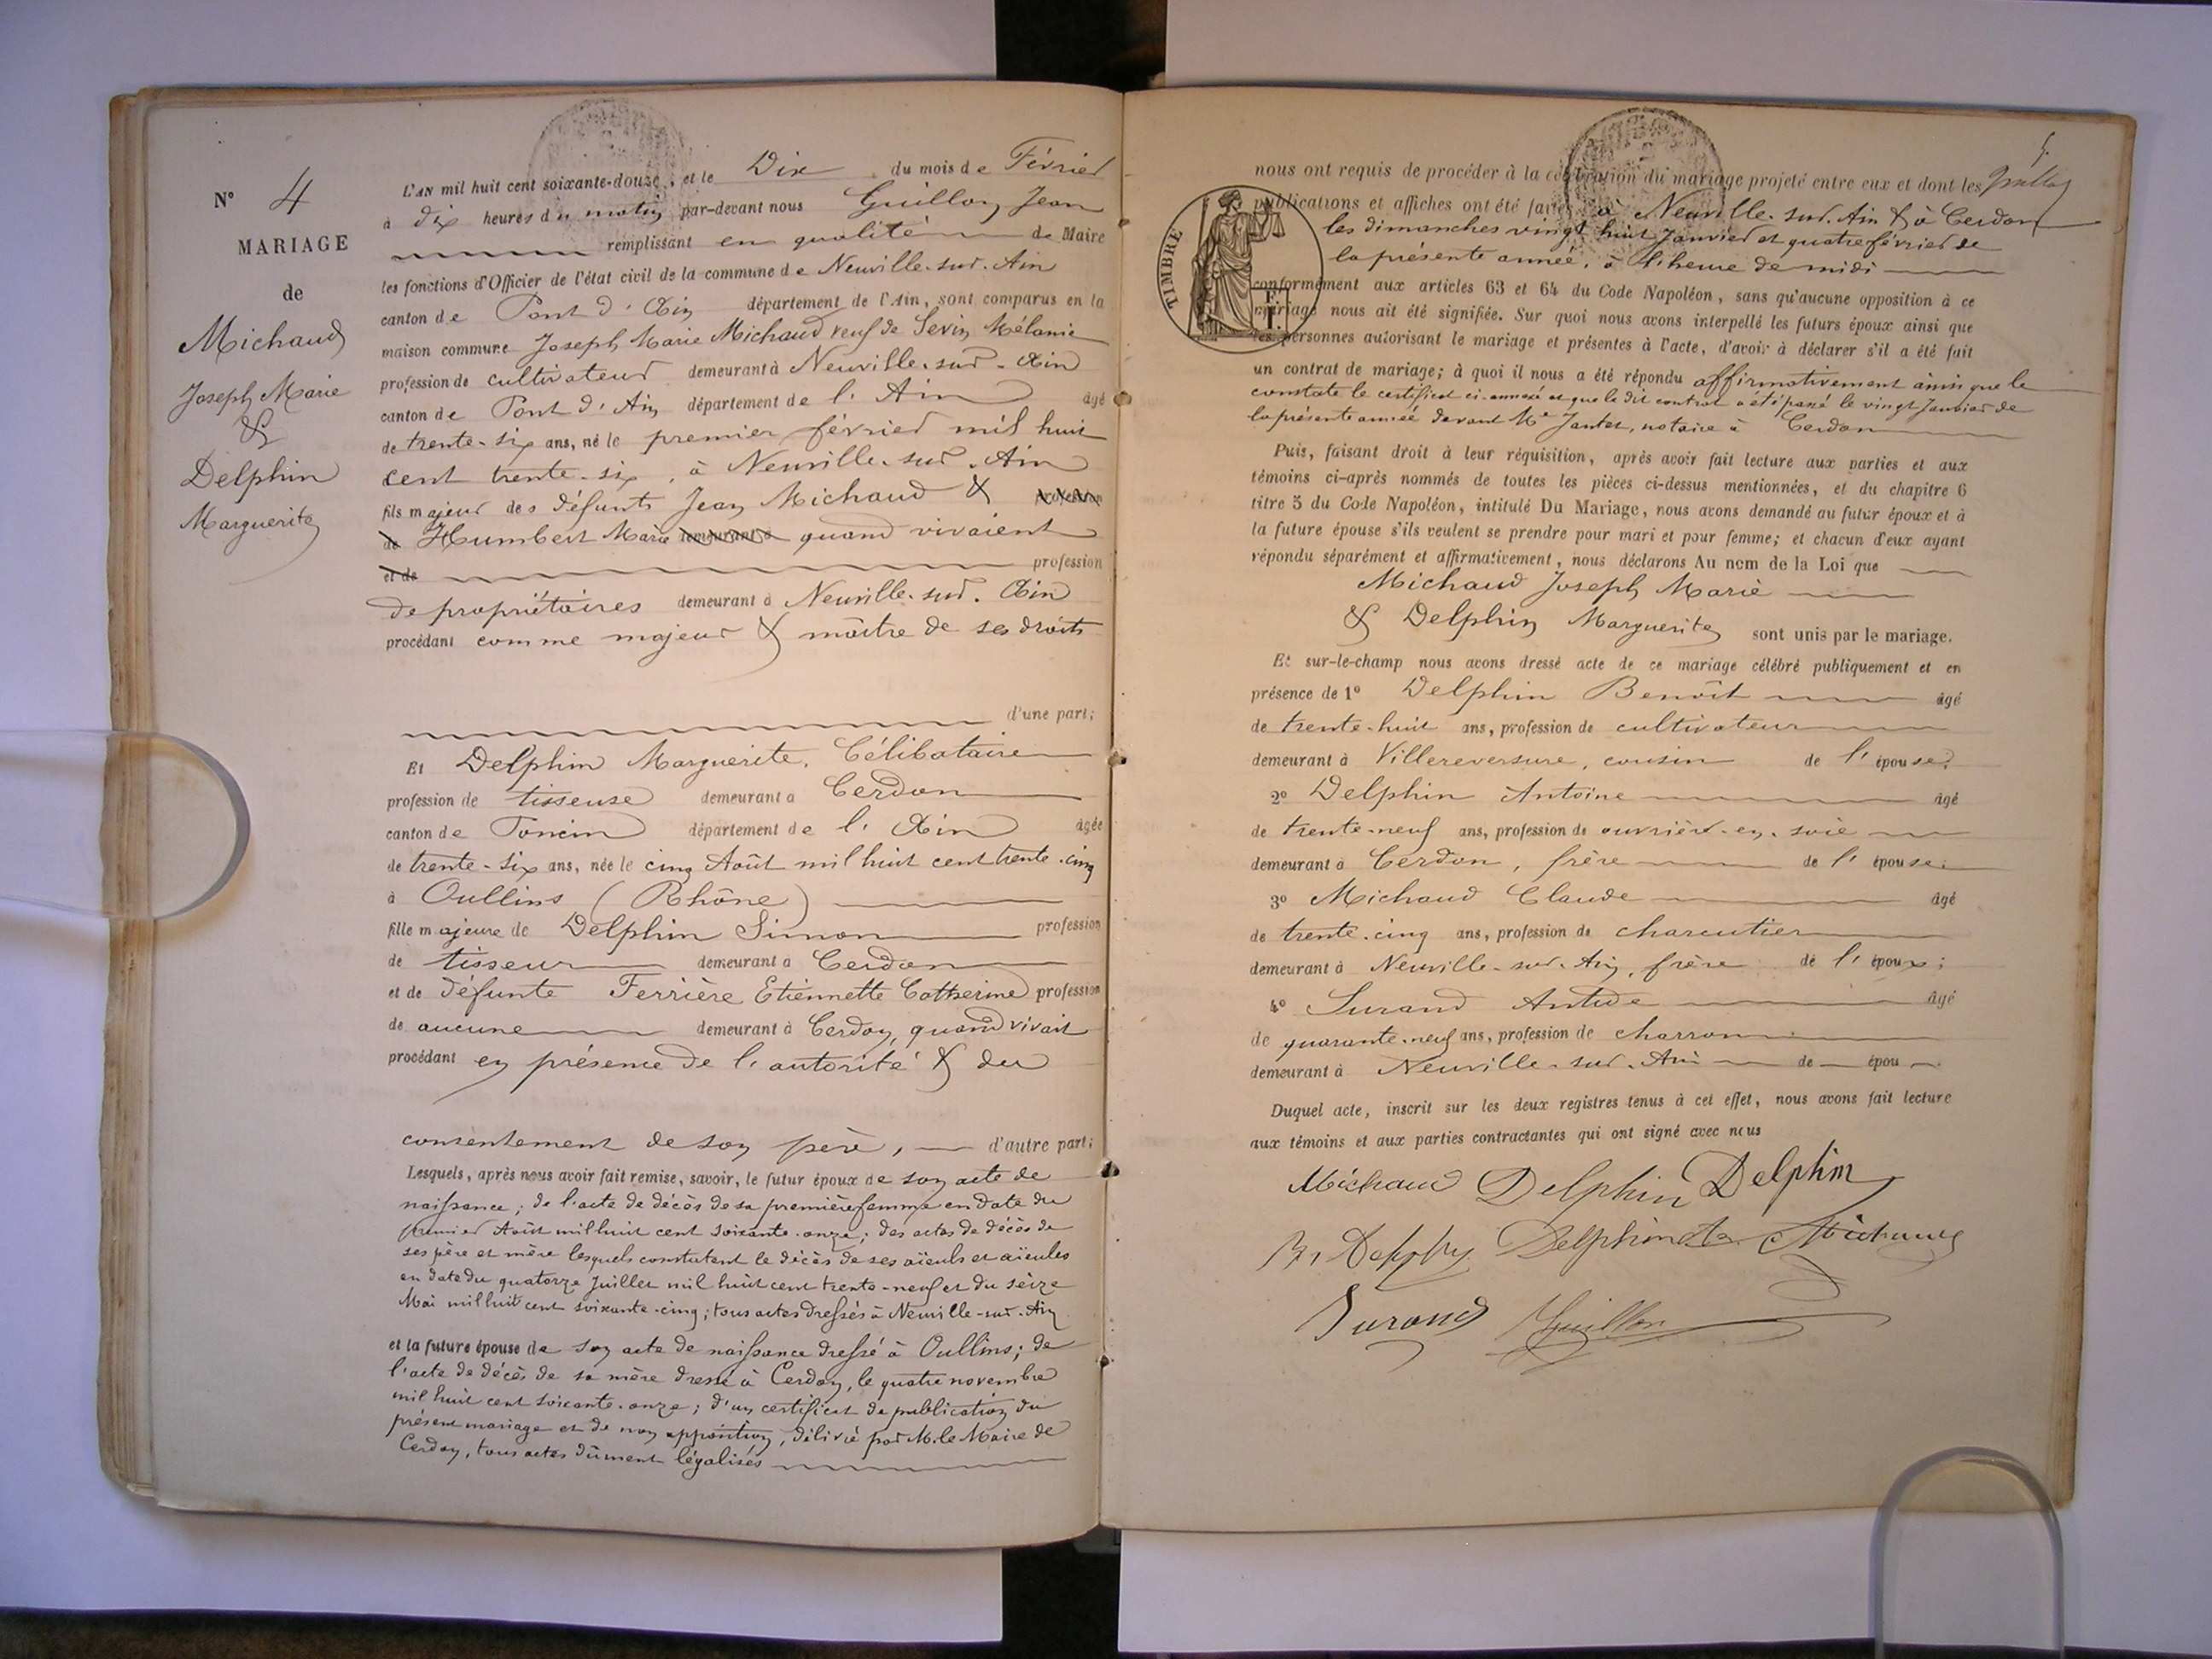 N° 4
MARIAGE
de
Michaud
Joseph Marie
&
Delphin
Marguerite
L'AN mil huit cent soixante-douze, et le Dix du mois de Février
à dix heures du matin par-devant nous Guillon Jean
remplissant en qualité de Maire
les fonctions d'Officier de l'état civil de la commune de Neuville-sur-Ain
canton de Pont d'Ain département de l'Ain, sont comparus en la
maison commune Joseph Marie Michaud veuf de Sevin Mélanie
profession de cultivateur demeurant à Neuville-sur-Ain
canton de Pont d'Ain département de l'Ain âgé
de trente-six ans, né le premier février mil huit
cent trente-six, à Neuville-sur-Ain
fils majeur des défunts Jean Michaud & profession
de Humbert Marie demeurant à quand vivaient
et de profession
de propriétaires demeurant à Neuville-sur-Ain
procédant comme majeur & maître de ses droits
d'une part;
Et Delphin Marguerite, Célibataire
profession de tisseuse demeurant à Cerdon
canton de Poncin département de l'Ain âgée
de trente-six ans, née le cinq Août mil huit cent trente-cinq
à Oullins (Rhône)
fille majeure de Delphin Simon profession
de tisseur demeurant à Cerdon
et de défunte Ferrière Etiennette Catherine profession
de aucune demeurant à Cerdon, quand vivait
procédant en présence de l'autorité & du
consentement de son père, d'autre part;
Lesquels, après nous avoir fait remise, savoir, le futur époux de son acte de
naissance; de l'acte de décès de sa première femme en date du
premier Août mil huit cent soixante-onze; des actes de décès de
ses père et mère lesquels constatent le décès de ses aïeuls et aïeules
en date du quatorze Juillet mil huit cent trente-neuf et du seize
Mai mil huit cent soixante-cinq; tous actes dressés à Neuville-sur-Ain
et la future épouse de son acte de naissance dressé à Oullins; de
l'acte de décès de sa mère dressé à Cerdon, le quatre novembre
mil huit cent soixante-onze; d'un certificat de publication du
présent mariage et de non opposition, délivré par M. le Maire de
Cerdon, tous actes dûment légalisés
5.
Guillon
nous ont requis de procéder à la célébration du mariage projeté entre eux et dont les
publications et affiches ont été faites à Neuville-sur-Ain & à Cerdon
les dimanches vingt huit Janvier et quatre février de
la présente année, à l'heure de midi
TIMBRE
conformément aux articles 63 et 64 du Code Napoléon, sans qu'aucune opposition à ce
mariage nous ait été signifiée. Sur quoi nous avons interpellé les futurs époux ainsi que
les personnes autorisant le mariage et présentes à l'acte, d'avoir à déclarer s'il a été fait
un contrat de mariage; à quoi il nous a été répondu affirmativement ainsi que le
constate le certificat ci-annexé et que le dit contrat a été passé le vingt Janvier de
la présente année devant Me Jantet, notaire à Cerdon
Puis, faisant droit à leur réquisition, après avoir fait lecture aux parties et aux
témoins ci-après nommés de toutes les pièces ci-dessus mentionnées, et du chapitre 6
titre 5 du Code Napoléon, intitulé Du Mariage, nous avons demandé au futur époux et à
la future épouse s'ils veulent se prendre pour mari et pour femme; et chacun d'eux ayant
répondu séparément et affirmativement, nous déclarons Au nom de la Loi que
Michaud Joseph Marie
& Delphin Marguerite sont unis par le mariage.
Et sur-le-champ nous avons dressé acte de ce mariage célébré publiquement et en
présence de 1° Delphin Benoît âgé
de trente-huit ans, profession de cultivateur
demeurant à Villereversure, cousin de l'épouse;
2° Delphin Antoine âgé
de trente-neuf ans, profession de ouvrière-en-soie
demeurant à Cerdon, frère de l'épouse;
3° Michaud Claude âgé
de trente-cinq ans, profession de charcutier
demeurant à Neuville-sur-Ain, frère de l'époux;
4° Surand Antide âgé
de quarante-neuf ans, profession de charron
demeurant à Neuville-sur-Ain de épou
Duquel acte, inscrit sur les deux registres tenus à cet effet, nous avons fait lecture
aux témoins et aux parties contractantes qui ont signé avec nous
Michaud Delphin Delphin
Delphin Michaud
Surand Guillon